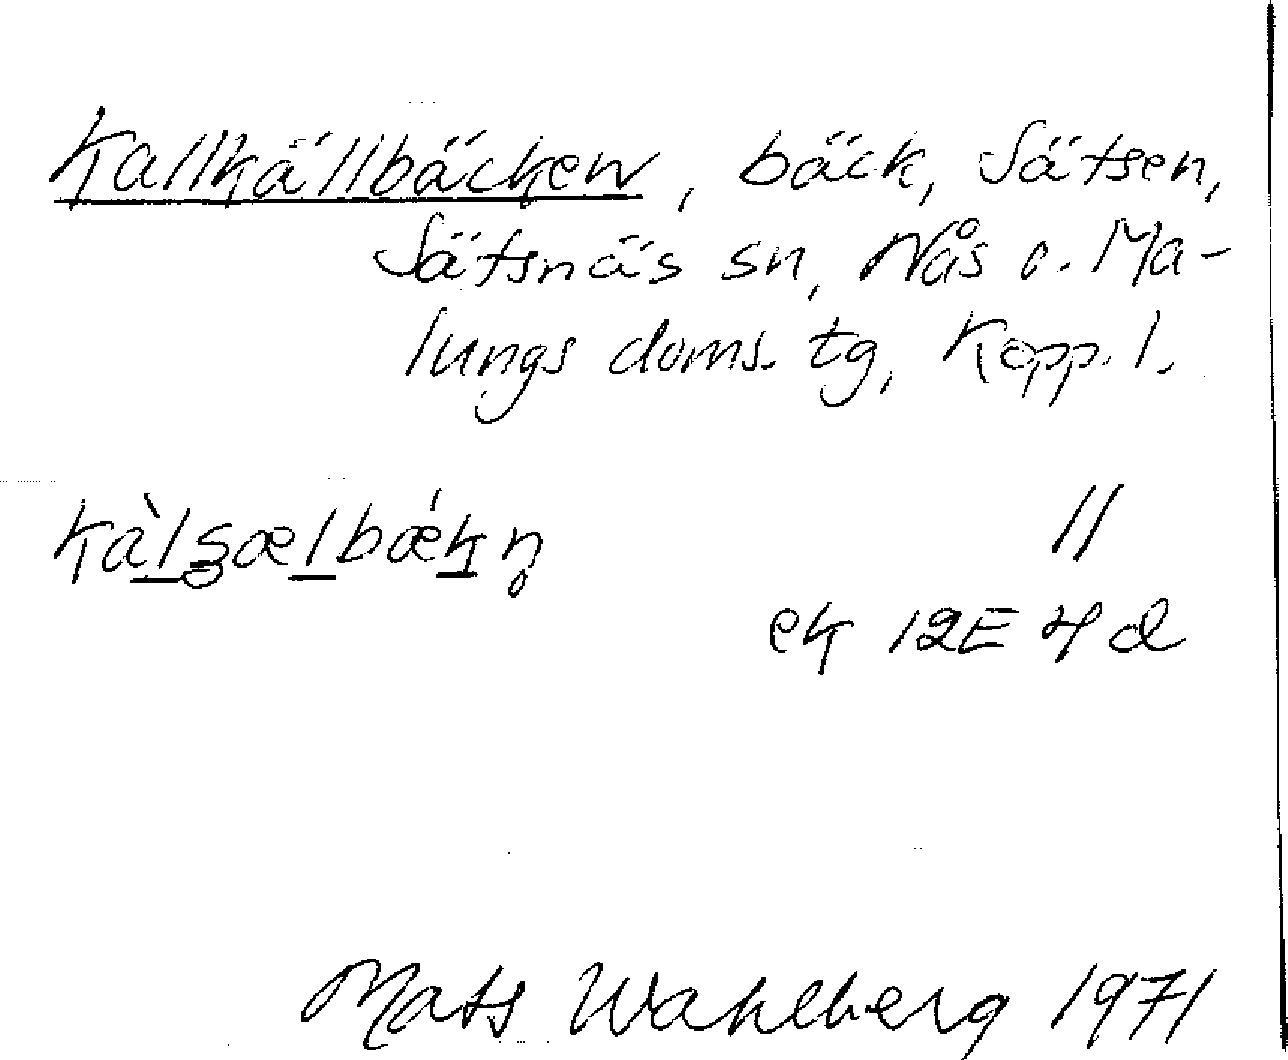 Kallkällbäcken, bäck, Sätsen,
Sätsnäs sn, Nås o. Ma-
lungs doms. tg, Kopp. l.
kàlʂælbǽkn̥ //
ek 12E 4d
Mats Wahlberg 1971